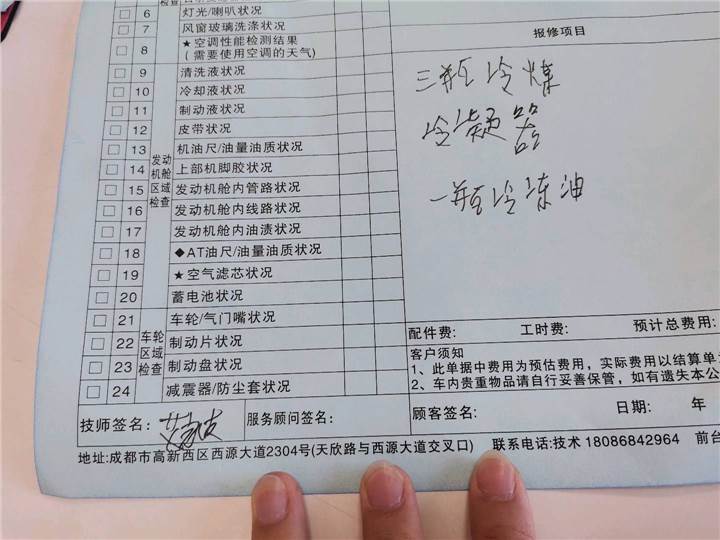 6 灯光/喇叭状况
检查
7 风窗玻璃洗涤状况
8 ★空调性能检测结果
(需要使用空调的天气)
报修项目
9 清洗液状况
10 冷却液状况
11 制动液状况
12 皮带状况
13 机油尺/油量油质状况
14 上部机脚胶状况
15 发动机舱内管路状况
16 发动机舱内线路状况
17 发动机舱内油渍状况
18 ◆AT油尺/油量油质状况
19 ★空气滤芯状况
20 蓄电池状况
发动
机舱
区域
检查
21 车轮/气门嘴状况
22 制动片状况
23 制动盘状况
24 减震器/防尘套状况
车轮
区域
检查
三瓶冷媒
冷凝器
一瓶冷冻油
配件费: 工时费: 预计总费用:
客户须知
1、此单据中费用为预估费用，实际费用以结算单
2、车内贵重物品请自行妥善保管，如有遗失本公
技师签名: 服务顾问签名: 顾客签名: 日期: 年
地址:成都市高新西区西源大道2304号(天欣路与西源大道交叉口) 联系电话:技术 18086842964 前台